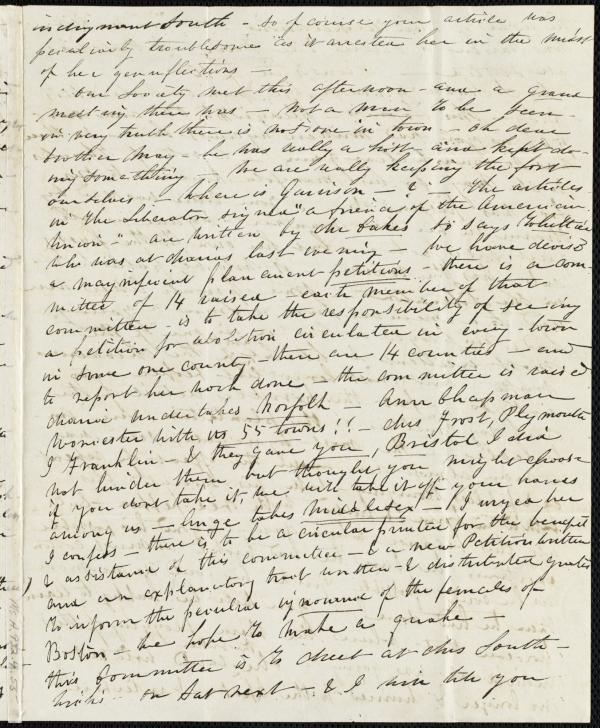 indignant South - so of course your article was
peculiarly troublesome as it arrested her in the midst
of her genuflections -
Our Society met this afternoon - and a grand
meeting there was - not a man to be seen -
in very truth there is not one in town - oh dear
brother May - he was really a host and kept do-
ing something - We are really keeping the fort
ourselves - where is Garrison - & - The articles
in The Liberator signed "a friend of the American
Union" - are written by so says Whittier
who was at last evening - We have devised
a magnificent plan anent petitions - there is a com-
mittee of 14 raised - each member of that
committee is to take the responsibility of seeing
a petition for abolition circulated in every town
in some one county - there are 14 counties - and
to report her work done - the committee is raised
undertakes Norfolk - Ann Chapman
Worcester with its 55 towns!! - Frost, Plymouth
I Franklin - & they gave you, Bristol I did
not hinder them but thought you might choose
if you dont take it, we will take it off your hands
among us - takes Middlesex - I urged her
I confess - there is to be a circular printed for the benefit
& assistance of this committee - & a new Petition written
and an explanatory tract written - & distributed gratis
to inform the peculiar ignorance of the females of
Boston - we hope to make a quake -
this Committee is to meet at this South-
on Sat next - & I will tell you